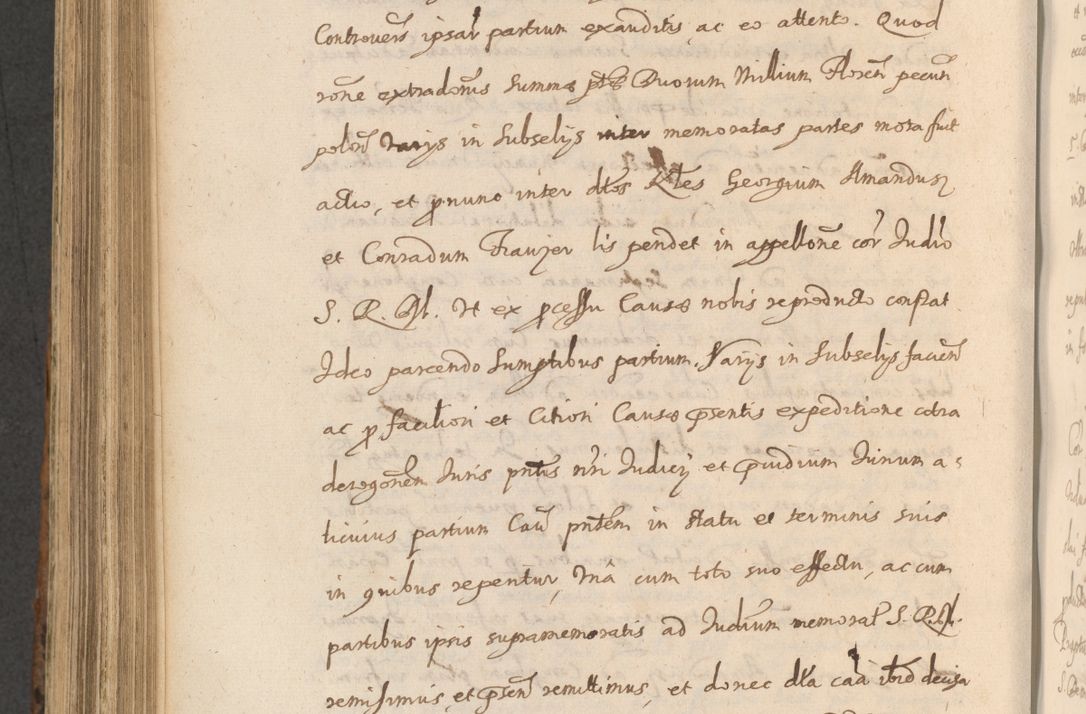 Controvers ipsar partium exauditis, ac eo attento. Quod
rõne extradonis Summæ ptæ Duorum Millium Floren pecun
polon Varijs in Subselijs inter memoratas partes mota fuit
actio, et pnunc inter dtos Georgium Amandusz
et Conradum Frayzer lis pendet in appellone cor Judio
S. R. M. Ut ex pcessu Causæ nobis reproducto constat.
Ideo parcendo Sumptibus partium Varijs in Subselijs facien
ac p faciliori et Citiori Causæ psentis expeditione cotra
derogonem Juris pntis nri Judicij et pudium Jurium a-
licuius partium Cau pntem in statu et terminis suis
in quibus repentur, Una cum toto suo effectu, ac cum
partibus ipsis supramemoratis ad Judium memorat S. R. M.
remisimus, et psen remittimus, et donec dta caa ibid decisa